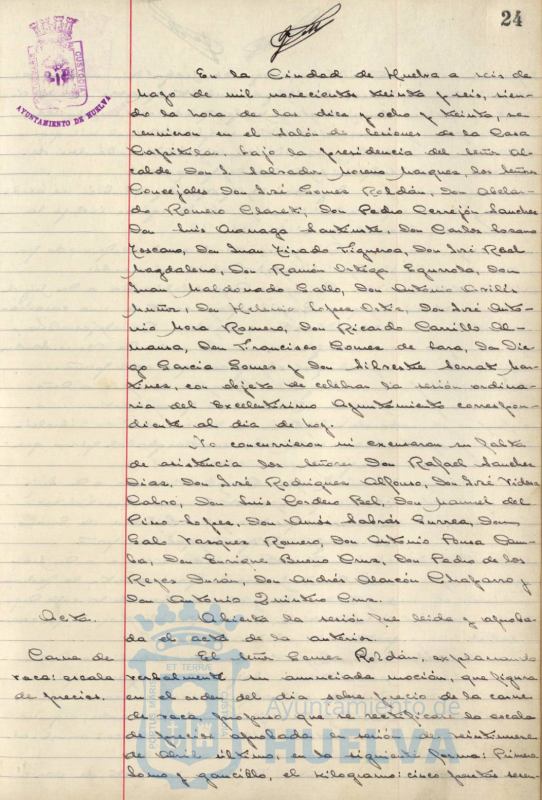 24
AYUNTAMIENTO DE HUELVA
En la Ciudad de Huelva a seis de
Mayo de mil novecientos treinta y seis, sien-
do la hora de las diez y ocho y treinta, se
reunieron en el salón de sesiones de la Casa
Capitular, bajo la presidencia del señor Al-
calde Don Salvador Moreno Marquez, los señores
Concejales Don José Gomez Roldán, Don Abelar-
do Romero Claret, Don Pedro Cerrejón Sanchez
Don Luis Don Carlos Lozano
Toscano, Don Juan Tirado Figueroa, Don José Real
Magdaleno, Don Ramón Ortiga Don
Juan Maldonado Gallo, Don Antonio
Muñoz, Don Lopez Ortiz, Don José Anto-
nio Mora Romero, Don Ricardo Carrillo Al-
mansa, Don Francisco Gomez de Lara, Don Die-
go Garcia Gomez y Don Silvestre Serrat Mar-
tinez, con objeto de celebrar la sesión ordina-
ria del Excelentísimo Ayuntamiento correspon-
diente al dia de hoy.
No concurrieron ni excusaron su falta
de asistencia los señores Don Rafael Sanchez
Diaz, Don José Rodriguez Alfonso, Don José Vides
Calvo, Don Luis Cordero Bel, Don Manuel del
Pino Lopez, Don Amós Sabrás Gurrea, Don
Galo Vazquez Romero, Don Antonio Pousa Cam-
ba, Don Enrique Bueno Cruz, Don Pedro de los
Reyes Durán, Don Andrés Alarcón Chaparro y
Don Antonio Quintero Cruz.
Acta.
Abierta la sesión fue leida y aproba-
da el acta de la anterior.
Carne de
vaca: escala
de precios.
El señor Gomez Roldán, explanando
verbalmente su anunciada moción, que figura
en el orden del dia sobre precio de la carne
de vaca, propuso que se rectificara la escala
de precios aprobada en sesión del veintinueve
de Abril último, en la siguiente forma: Primera
Lomo y gancillo, el kilogramo: cinco pesetas seten-
ET TERRA
PORTUS MARIS
CUSTODIA
Ayuntamiento de
HUELVA